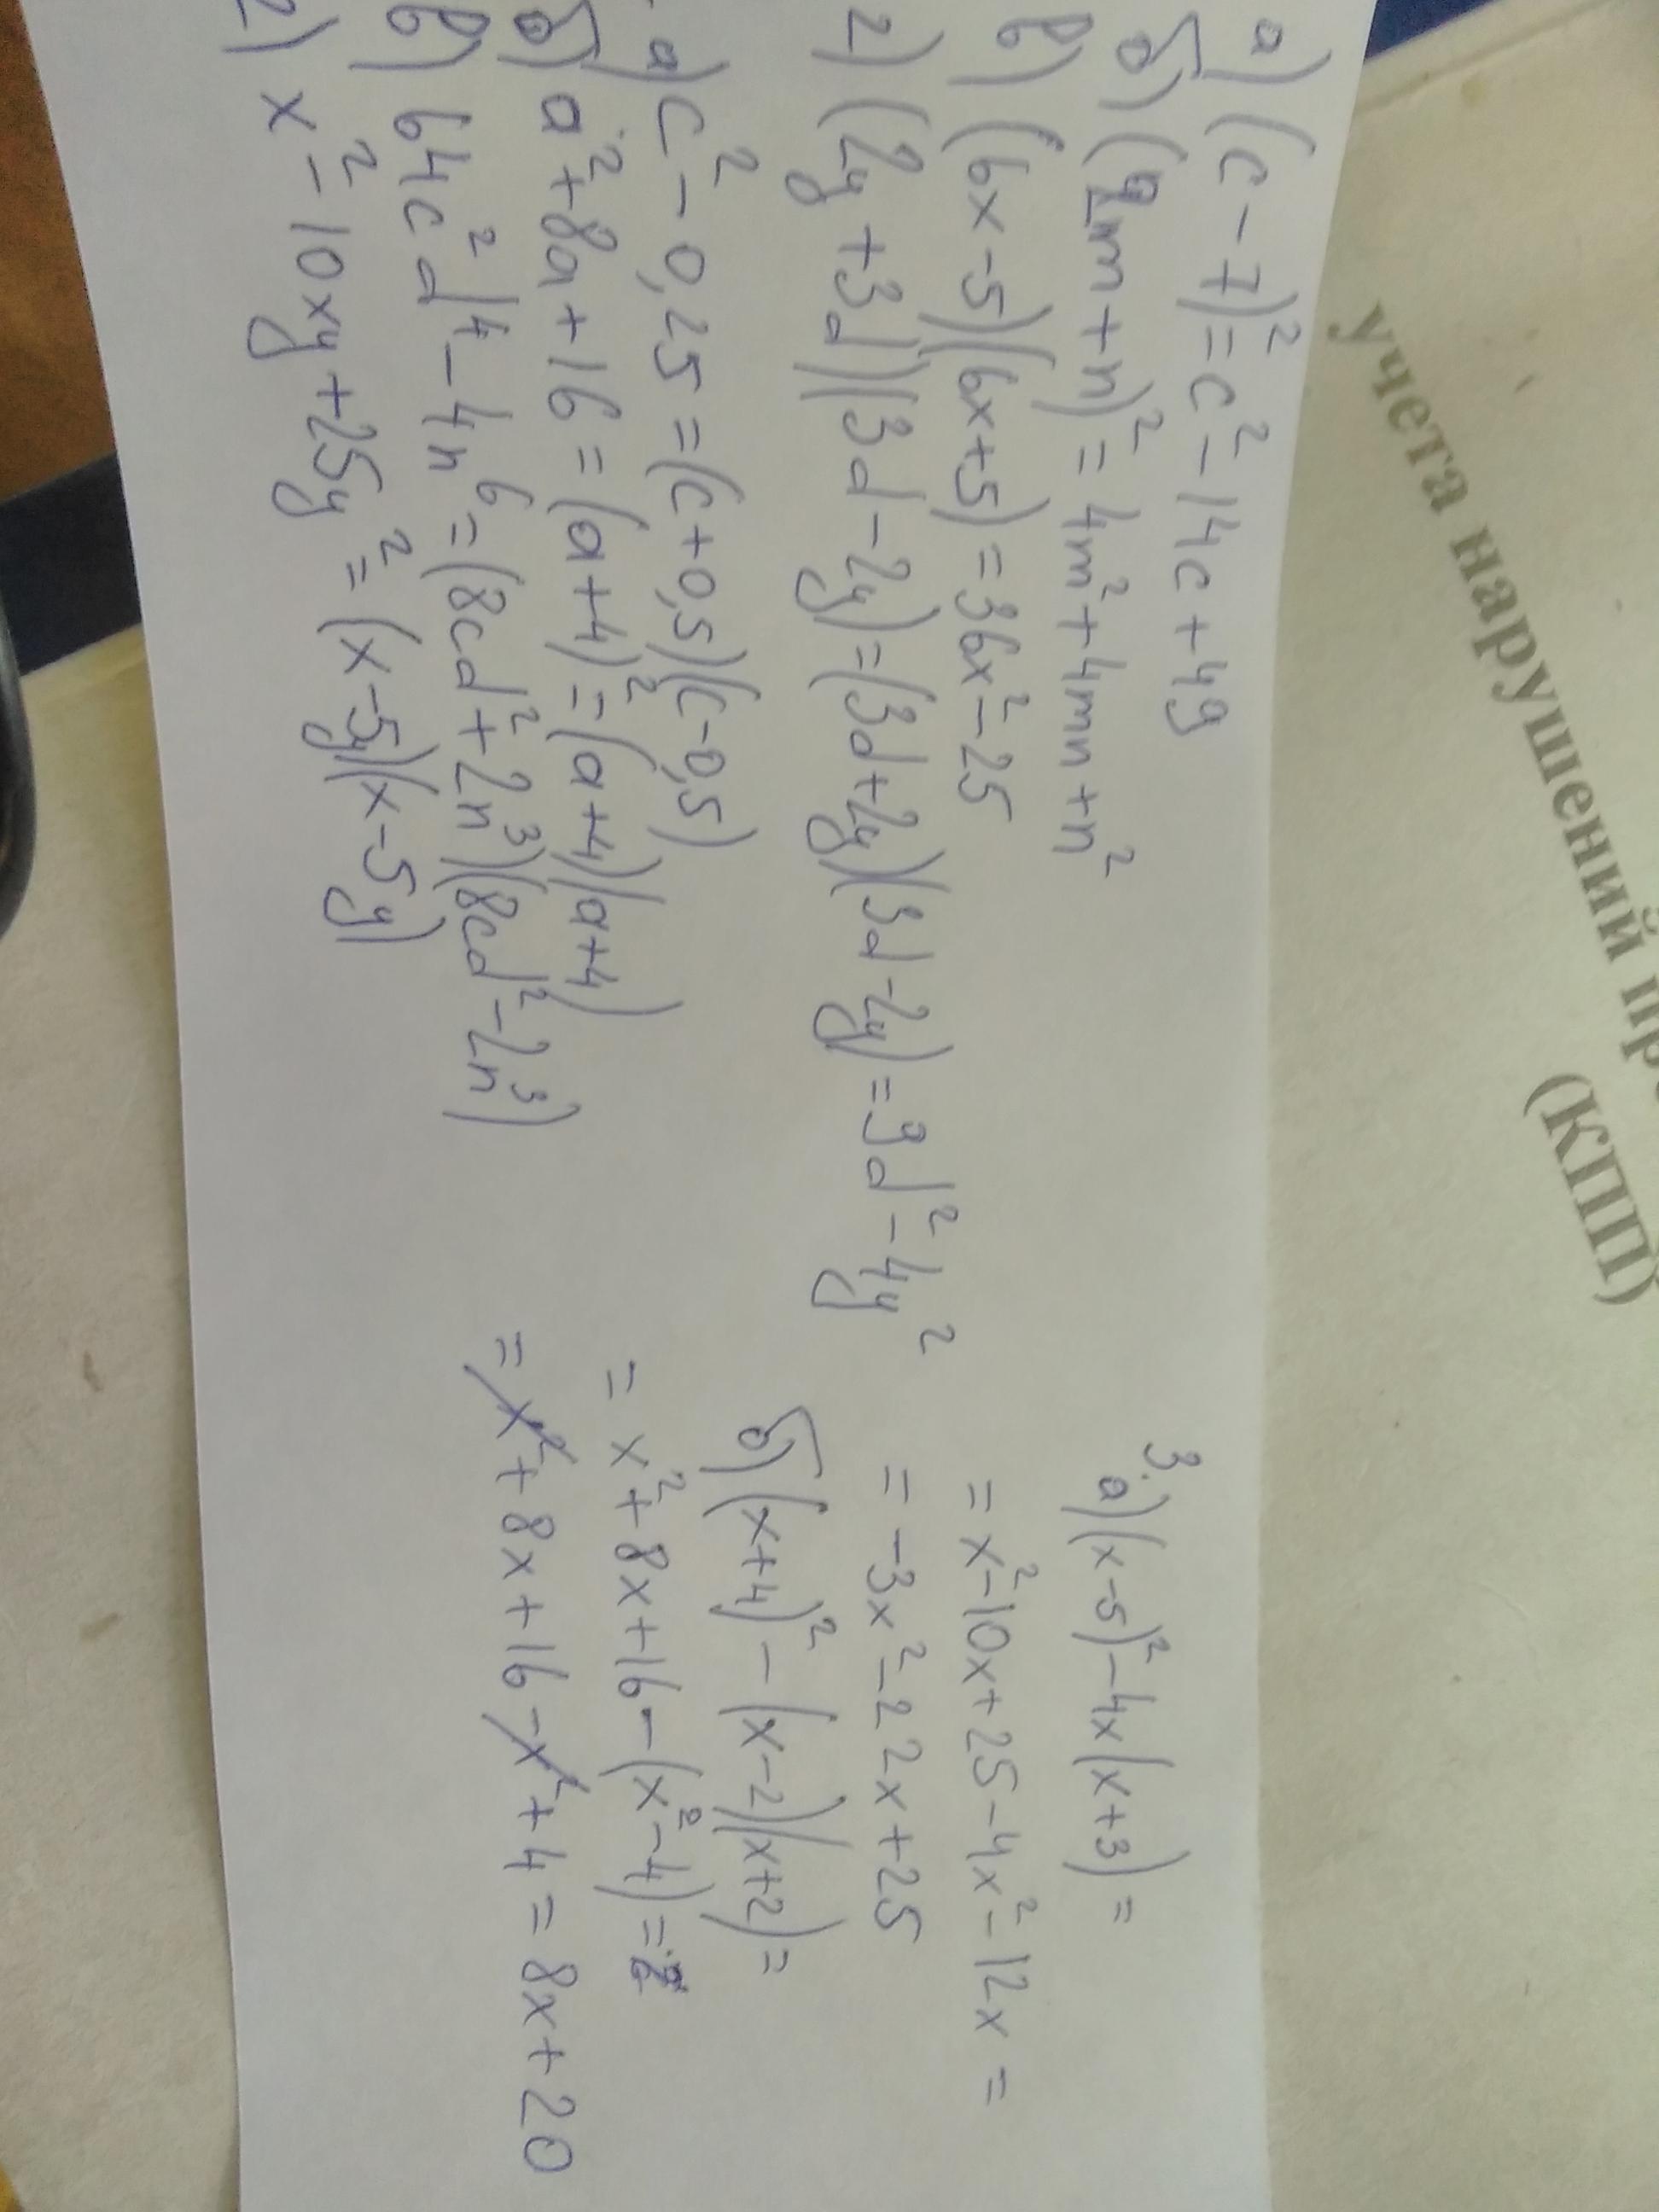 учета нарушений пр
(КПП)
а) (c-7)²=c²-14c+49
б) (2m+n)²=4m²+4mn+n²
в) (6x-5)(6x+5)=36x²-25
г) (2y+3d)(3d-2y)=(3d+2y)(3d-2y)=3d²-4y²
а) c²-0,25=(c+0,5)(c-0,5)
б) a²+8a+16=(a+4)²=(a+4)(a+4)
в) 64c²d⁴-4n⁶=(8cd²+2n³)(8cd²-2n³)
г) x²-10xy+25y²=(x-5y)(x-5y)
3. а) (x-5)²-4x(x+3)=
=x²-10x+25-4x²-12x=
=-3x²-22x+25
б) (x+4)²-(x-2)(x+2)=
=x²+8x+16-(x²-4)=
=x²+8x+16-x²+4=8x+20